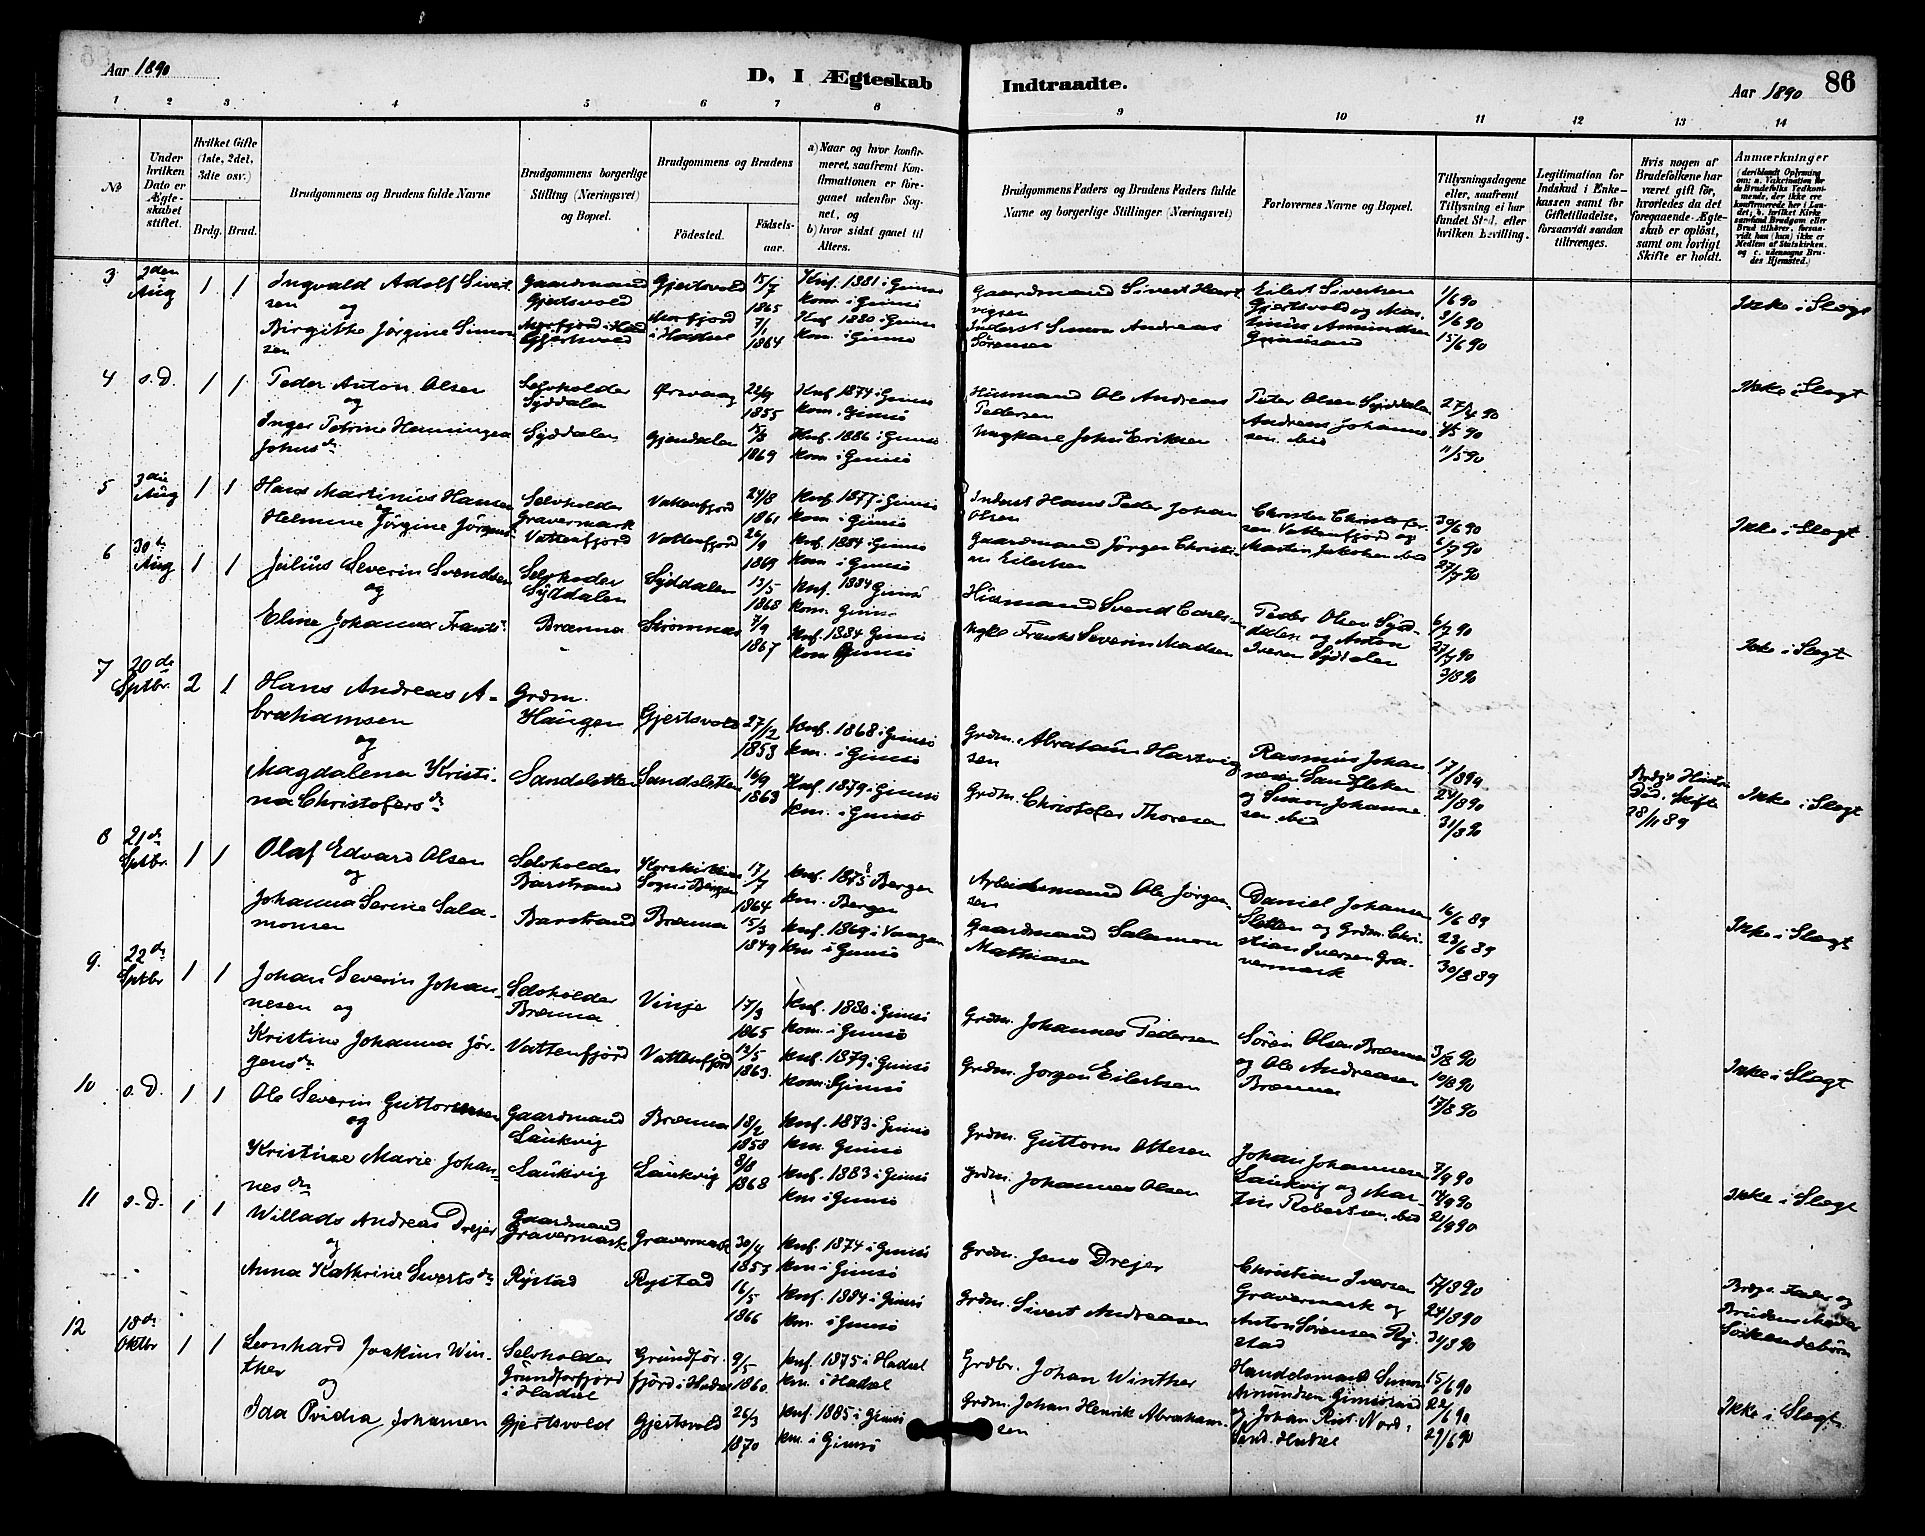 Aar 1890
D, I Ægteskab
Indtraadte.
Aar 1890
86
1 2 3 4 5 6 7 8 9 10 11 12 13 14
№
Under hvilken Dato er Ægteskabet stiftet.
Hvilket Gifte (1ste, 2det, 3die osv.)
Brdg. Brud.
Brudgommens og Brudens fulde Navne
Brudgommens borgerlige Stilling (Næringsvei) og Bopæl.
Brudgommens og Brudens
Fødested.
Fødselsaar.
a) Naar og hvor konfirmeret, saafremt Konfirmationen er foregaaet udenfor Sognet, og
b) hvor sidst gaaet til Alters.
Brudgommens Faders og Brudens Faders fulde Navne og borgerlige Stillinger (Næringsvei)
Forlovernes Navne og Bopæl.
Tillysningsdagene eller, saafremt Tillysning ei har fundet Sted, efter hvilken bevilling.
Legitimation for Indskud i Enkekassen samt for Giftetilladelse, forsaavidt saadan tiltrænges.
Hvis nogen af Brudefolkene har været gift før, hvorledes da det foregaaende Ægteskab er opløst, samt om lovligt Skifte er holdt.
Anmærkninger
3 3den Aug 1 1
Ingvald Adolf Sivertsen
og
Birgitte Jørgine Simonsen
Gaardmand Gjertsvold
Gjertsvold
Gjertsvold 15/7 1865
Morfjord i Hadsel 7/1 1864
Knf. 1881 i Gimsø
kom i Gimsø
Knf. 1880 i Gimsø
kom. i Gimsø
Gaardmand Sivert Hartvigsen
Inderst Simon Andreas Sørensen
Eilert Sivertsen
Gjertsvold og
Amundsen
1/6 90
15/6 90
Ikke i Slægt
4 s.D. 1 1
Peder Anton Olsen
og
Inger Petrine Henningea Johnsdr
Selvholder Syddalen
Syddalen
Ørsvaag 22/9 1855
1869
Knf. 1874 i Gimsø
kom. i Gimsø
Knf. 1886 i Gimsø
kom i Gimsø
Husmand Ole Andreas Pedersen
Ungkarl John Eriksen
Peter Olsen Syddalen
Andreas Johannesen ibid
27/4 90
4/5 90
11/5 90
Ikke i Slægt
5 3die Aug 1 1
Hans Martinius Hansen
og
Helmine Jørgine Jørgens
Selvholder Gravermark
Vattenfjord
Vattenfjord 24/8 1861
Vattenfjord 26/9 1869
Knf. 1877 i Gimsø
kom i Gimsø
Knf. 1884 i Gimsø
kom i Gimsø
Inderst Hans Peder Johan Olsen
Gaardmand Jørgen Christian Eilertsen
Christen Christofersen Vattenfjord og
Martin Jakobsen ibid
30/6 90
6/7 90
27/7 90
Ikke i Slægt
6 30te Aug 1 1
Julius Severin Svendsen
og
Eline Johanna Frants
Selvholder Syddalen
Brænna
Syddalen 13/5 1868
Strømnæs 7/9 1867
Knf. 1884 Gimsø
kom. Gimsø
Knf. 1884 Gimsø
kom Gimsø
Husmand Svend Carlsen
Frants Severin Madsen
Peder Olsen Syddalen og Anton
Iversen Syddalen
6/7 90
27/7 90
3/8 90
Ikke i Slægt
7 20de Sptbr. 2 1
Hans Andreas Abrahamsen
og
Magdalena Kristina Christofersdr
Grdm. Haugen
Sandsletten
Gjertsvold 27/12 1853
Sandsletten 16/9 1863
Knf. 1868 i Gimsø
km. i Gimsø
Knf. 1879 i Gimsø
km. i Gimsø
Grdm. Abraham Hartvigsen
Grdm. Christofer Thoresen
Rasmus Johannesen
og Simon Johannesen ibid
17/8 90
24/8 90
31/8 90
Brdgs Hustru Død. Skifte 28/11 89
Ikke i Slægt
8 21de Sptbr. 1 1
Olaf Edvard Olsen
og
Johanna Serine Salamonsen
Selvholder Barstrand
Barstrand
Korskirkens Sogn i Bergen 17/7 1864
Brenna 15/3 1849
Knf. 1875 i Bergen
km. Bergen
Knf. 1869 i Vaagan
km i Gimsø
Arbeidsmand Ole Jørgensen
Gaardmand Salamon Mathiasen
Daniel Johansen
Sletten og Grdm. Christian Iversen Gravermark
16/6 89
23/6 89
30/8 89
Ikke i Slægt
9. 22de Sptbr 1 1
Johan Severin Johannesen og
Kristine Johanna Jørgensdr
Selvholder Brenna
Vattenfjord
Vinje 17/3 1865
Vattenfjord 13/5 1863.
Knf. 1880 i Gimsø
kom. i Gimsø
Knf. 1879 i Gimsø
kom. i Gimsø
Grdm. Johannes Pedersen
Grdm. Jørgen Eilertsen
Søren Olsen Brenna
og Ole Andreasen
Brenna
3/8 90
10/8 90
17/8 90
Ikke i Slægt
10 s.D. 1 1
Ole Severin Guttormsen
og
Kristine Marie Johannesdr
Gaardmand Laukvig
Laukvig
Brenna 18/2 1858
Laukvig 8/8 1868
Knf. 1873 i Gimsø
km. Gimsø
Knf. 1883 i Gimsø
km i Gimsø
Grdm. Guttorm Ottesen
Grdm. Johannes Olsen
Johan Johannesen
Laukvig og Martin Robertsen ibid
7/9 90
14/9 90
21/9 90
Ikke i Slægt
11 s.D. 1 1
Willads Andreas Drejer
og
Anna Kathrine Sivertsdr
Gaardmand Gravermark
Rystad
Gravermark 30/4 1853
Rystad 16/5 1866
Knf. 1874 i Gimsø
km i Gimsø
Knf. 1884 i Gimsø
km. i Gimsø
Grdm. Jens Drejer
Grdm. Sivert Andreasen
Christian Iversen
Gravermark og
Anton Sørensen Rystad
17/8 90
24/8 90
31/8 90
Brdgs. Fader og Brudens Moder Søskendebørn
12 18de Oktbr 1 1
Leonhard Joakim Winther
og
Ida Johansen
Selvholder Grundforfjord i Hadsel
Gjertsvold
Grundforfjord i Hadsel 9/5 1860.
Gjertsvold 26/3 1870
Knf. 1875 i Hadsel
km. i Hadsel
Knf. 1885 i Gimsø
km. i Gimsø
Grdbr. Johan Winther
Grdm. Johan Henrik Abrahamsen
Handelsmand Simon
Amundsen Gimsøsand
og Johan Rist Nordsand. Hadsel
15/6 90
22/6 90
29/6 90
Ikke i Slægt.